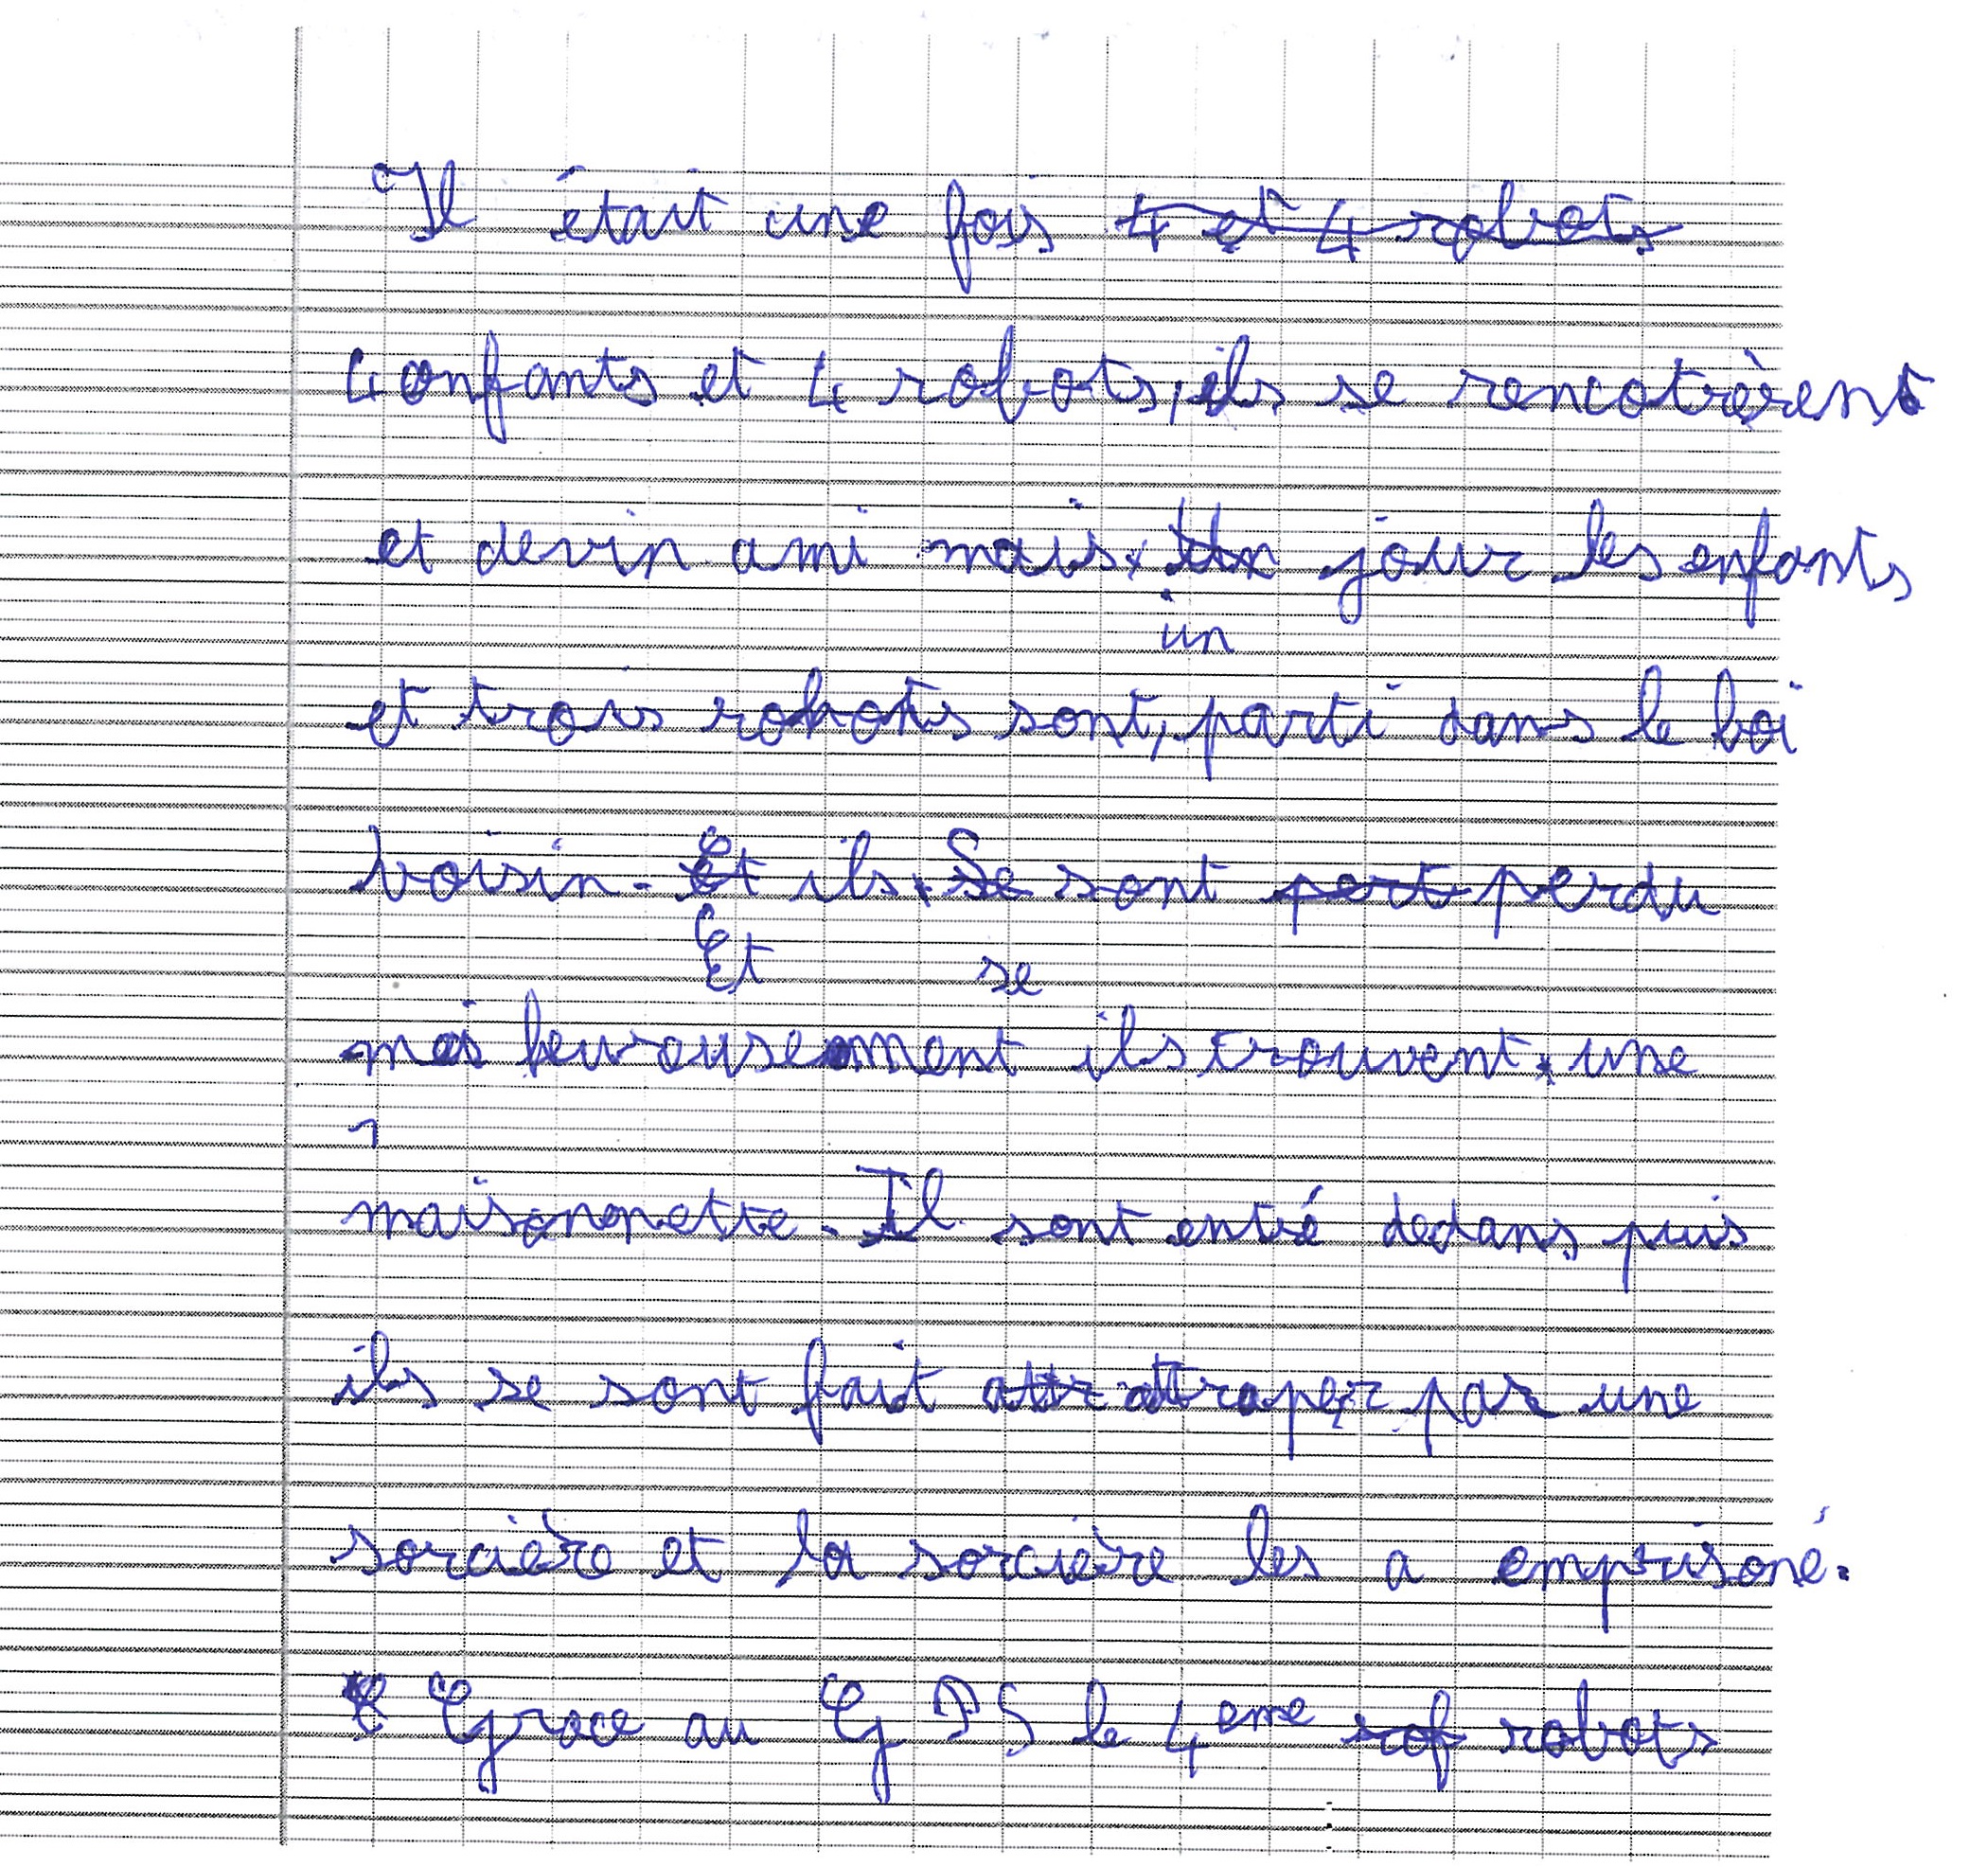 Il était une fois 4 et 4 robots
4 enfants et 4 robots, ils se rencotrèrent
et devin ami mais Un jour les enfants
un
et trois robots sont, parti dans le boi
voisin. Et ils Se sont pert perdu
Et se
mais heureusement ils trouvent une
maisonnette. Il sont entré dedans puis
ils se sont fait attr attraper par une
sorcière et la sorcière les a emprisoné.
Grace au GPS le 4eme rob robots